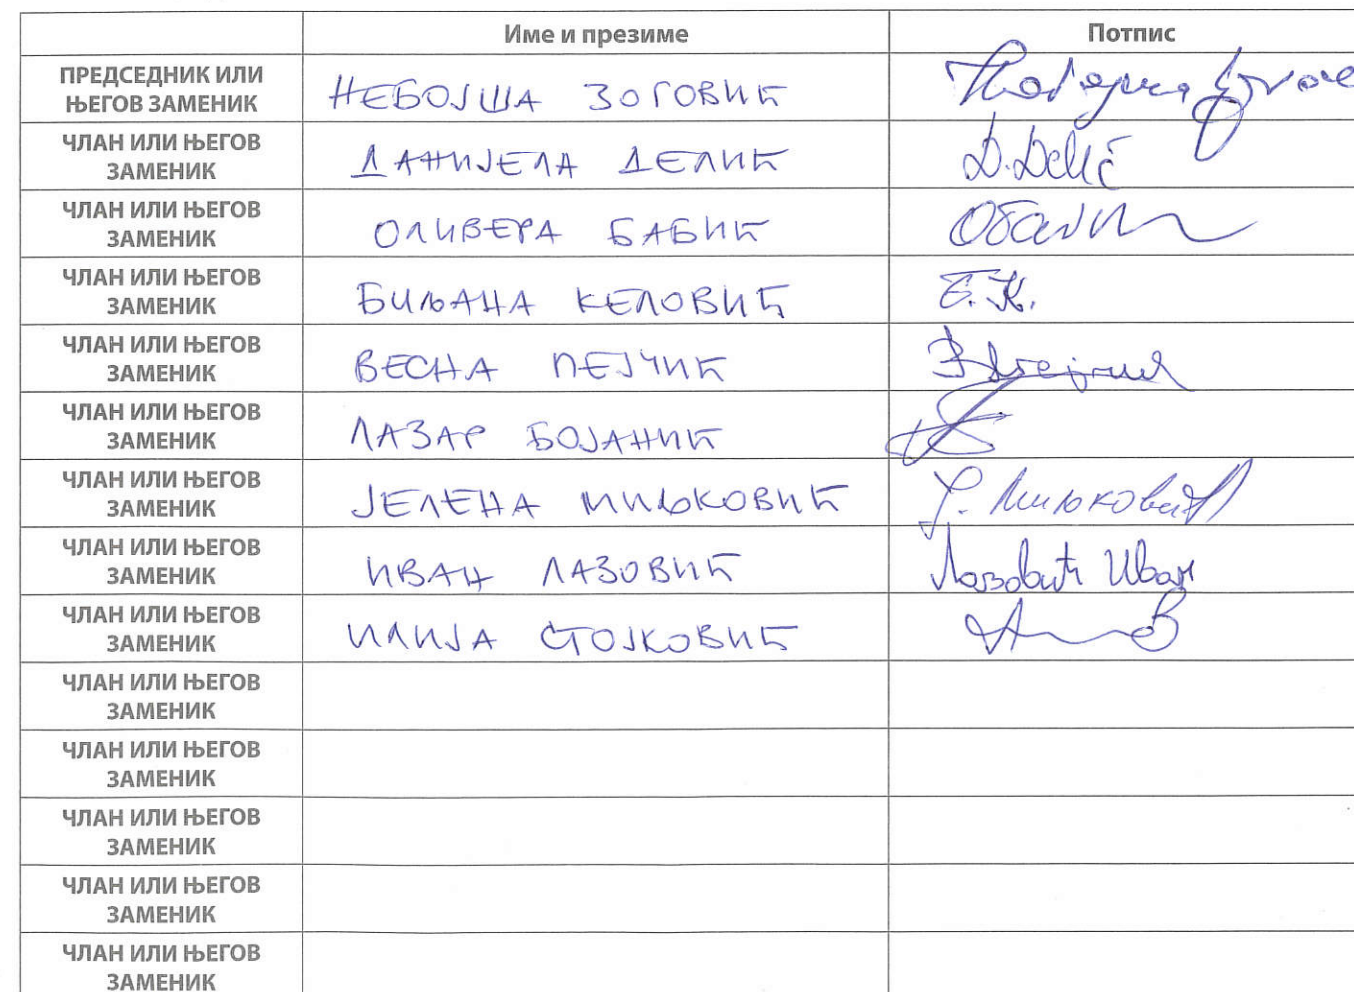 Име и презиме Потпис
ПРЕДСЕДНИК ИЛИ
ЊЕГОВ ЗАМЕНИК НЕБОЈША ЗОГОВИЋ
ЧЛАН ИЛИ ЊЕГОВ
ЗАМЕНИК ДАНИЈЕЛА ДЕЛИЋ D.Delić
ЧЛАН ИЛИ ЊЕГОВ
ЗАМЕНИК ОЛИВЕРА БАБИЋ
ЧЛАН ИЛИ ЊЕГОВ
ЗАМЕНИК БИЉАНА КЕЛОВИЋ Б.К.
ЧЛАН ИЛИ ЊЕГОВ
ЗАМЕНИК ВЕСНА ПЕЈЧИЋ
ЧЛАН ИЛИ ЊЕГОВ
ЗАМЕНИК ЛАЗАР БОЈАНИЋ
ЧЛАН ИЛИ ЊЕГОВ
ЗАМЕНИК ЈЕЛЕНА МИЉКОВИЋ Ј. Миљковић
ЧЛАН ИЛИ ЊЕГОВ
ЗАМЕНИК ИВАН ЛАЗОВИЋ Лазовић Иван
ЧЛАН ИЛИ ЊЕГОВ
ЗАМЕНИК ИЛИЈА СТОЈКОВИЋ
ЧЛАН ИЛИ ЊЕГОВ
ЗАМЕНИК
ЧЛАН ИЛИ ЊЕГОВ
ЗАМЕНИК
ЧЛАН ИЛИ ЊЕГОВ
ЗАМЕНИК
ЧЛАН ИЛИ ЊЕГОВ
ЗАМЕНИК
ЧЛАН ИЛИ ЊЕГОВ
ЗАМЕНИК